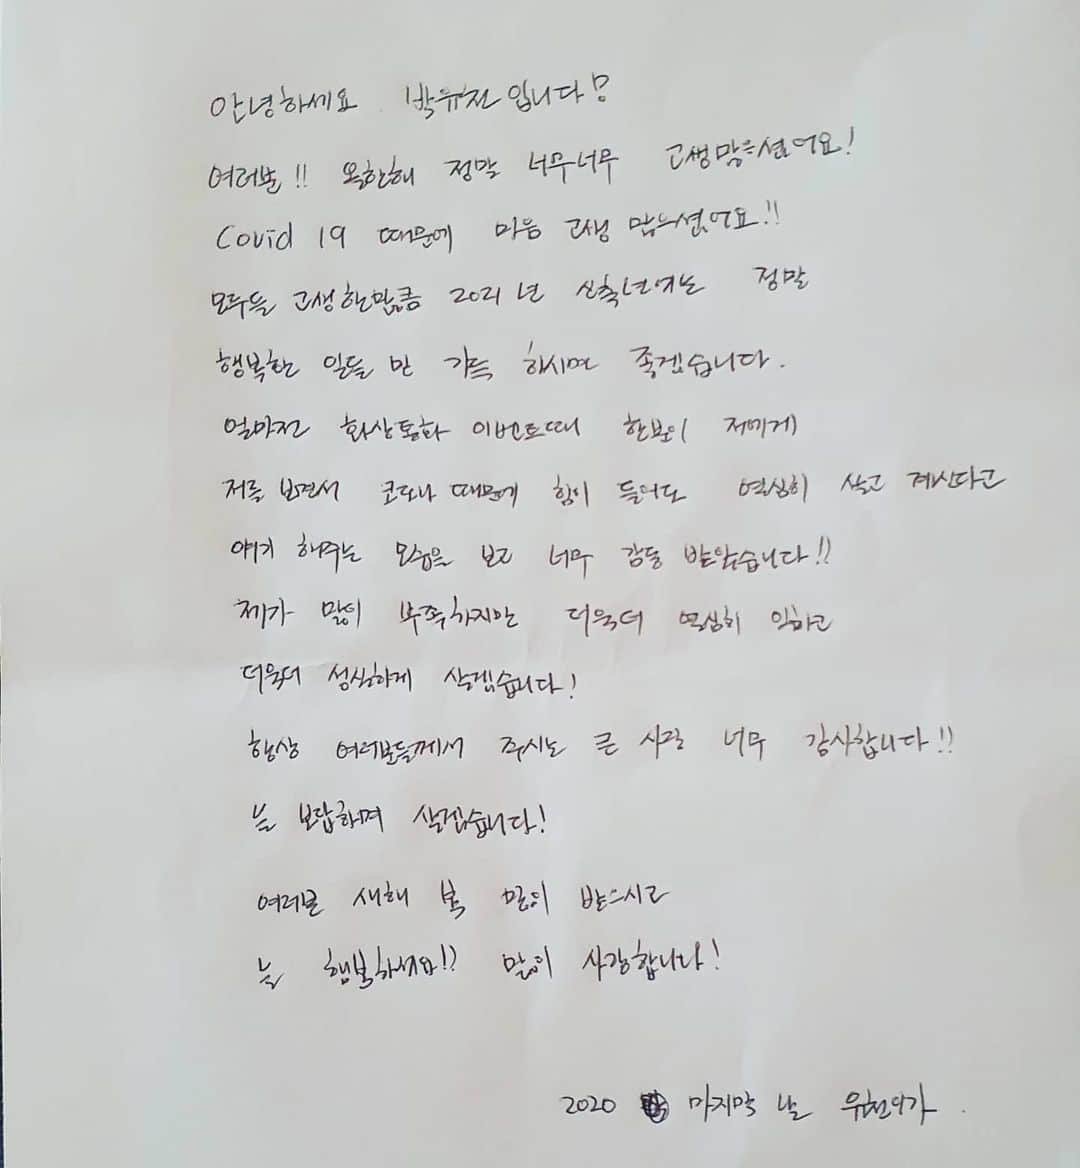 안녕하세요 박유천입니다!
여러분!! 올한해 정말 너무너무 고생많으셨어요!
Covid 19 때문에 마음 고생 많으셨어요!!
모두들 고생한만큼 2021년 신축년에는 정말
행복한 일들만 가득 하시면 좋겠습니다.
얼마전 화상통화 이벤트때 한분이 저에게
저를 보면서 코로나 때문에 힘이 들어도 열심히 살고 계신다고
얘기 해주는 모습을 보고 너무 감동 받았습니다!!
제가 많이 부족하지만 더욱더 열심히 일하고
더욱더 성실하게 살겠습니다!
항상 여러분들께서 주시는 큰 사랑 너무 감사합니다!!
늘 보답하며 살겠습니다!
여러분 새해 복 많이 받으시고
늘 행복하세요!? 많이 사랑합니다!
2020 마지막 날 유천이가.